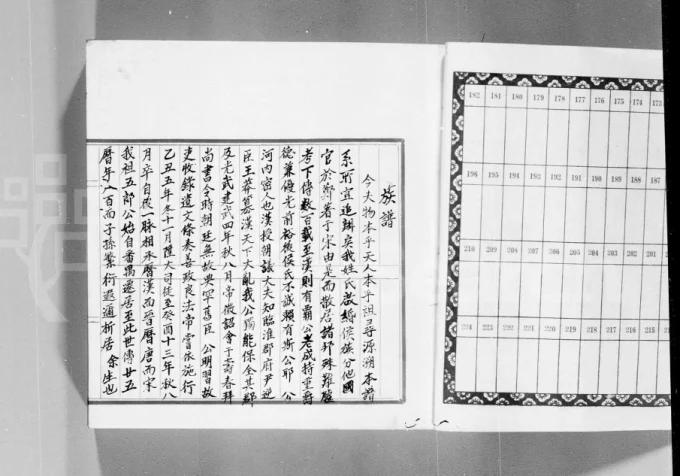 族譜
今夫物本乎天人本乎祖尋源溯本譜
系所宜追辨矣我姓氏啟婚侯族分他國
官於鄭著于宋由是而散居諸邦殊難歷
考下傳數百載至漢則有霸公老成持重爵
德兼優光前裕後侯氏不誠賴有斯公耶 公
河內密人也漢授朝議大夫知臨淮郡府尹逆
臣王莽篡漢天下大亂我公獨能保全其鄰
及光武建武四年秋八月帝徵詔會于壽春拜
尚書令時朝廷無故典罕舊臣 公明習故
吏收錄遺文條奏善政良法帝嘗依施行
乙丑五年冬十一月陞大司徒至癸酉十三年秋八
月卒自後一脉相承曆漢而晉曆唐而宋
我祖五郎公始自番禺遷居至此世傳廿五
曆年八百而子孫繁衍遐邇析居 余生也
182 181 180 179 178 177 176 175 174 173
196 195 194 193 192 191 190 189 188 187
210 209 208 207 206 205 204 203 202 201
224 223 222 221 220 219 218 217 216 215